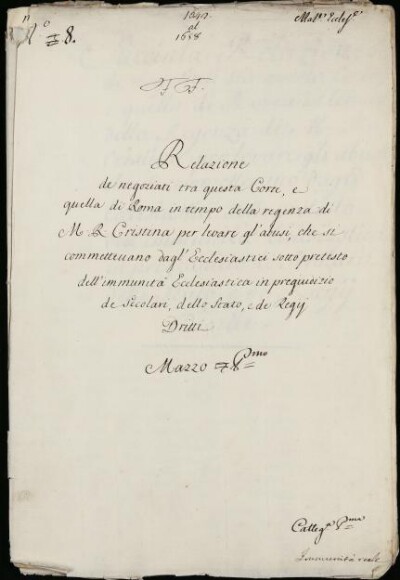 1642.
al
1658
Mat.ᵉ Eccles.ᶜᵉ
N.º 8.
F. F.
Relazione
de negoziati tra questa Corte, e
quella di Roma in tempo della regenza di
M R Cristina per levare gl'abusi, che si
commettevano dagl'Ecclesiastici sotto pretesto
dell'immunità Ecclesiastica in pregiudizio
de Secolari, dello Stato, e de Regij
Dritti
Mazzo P.mo
Categ.ª P.ma
Immunità reale